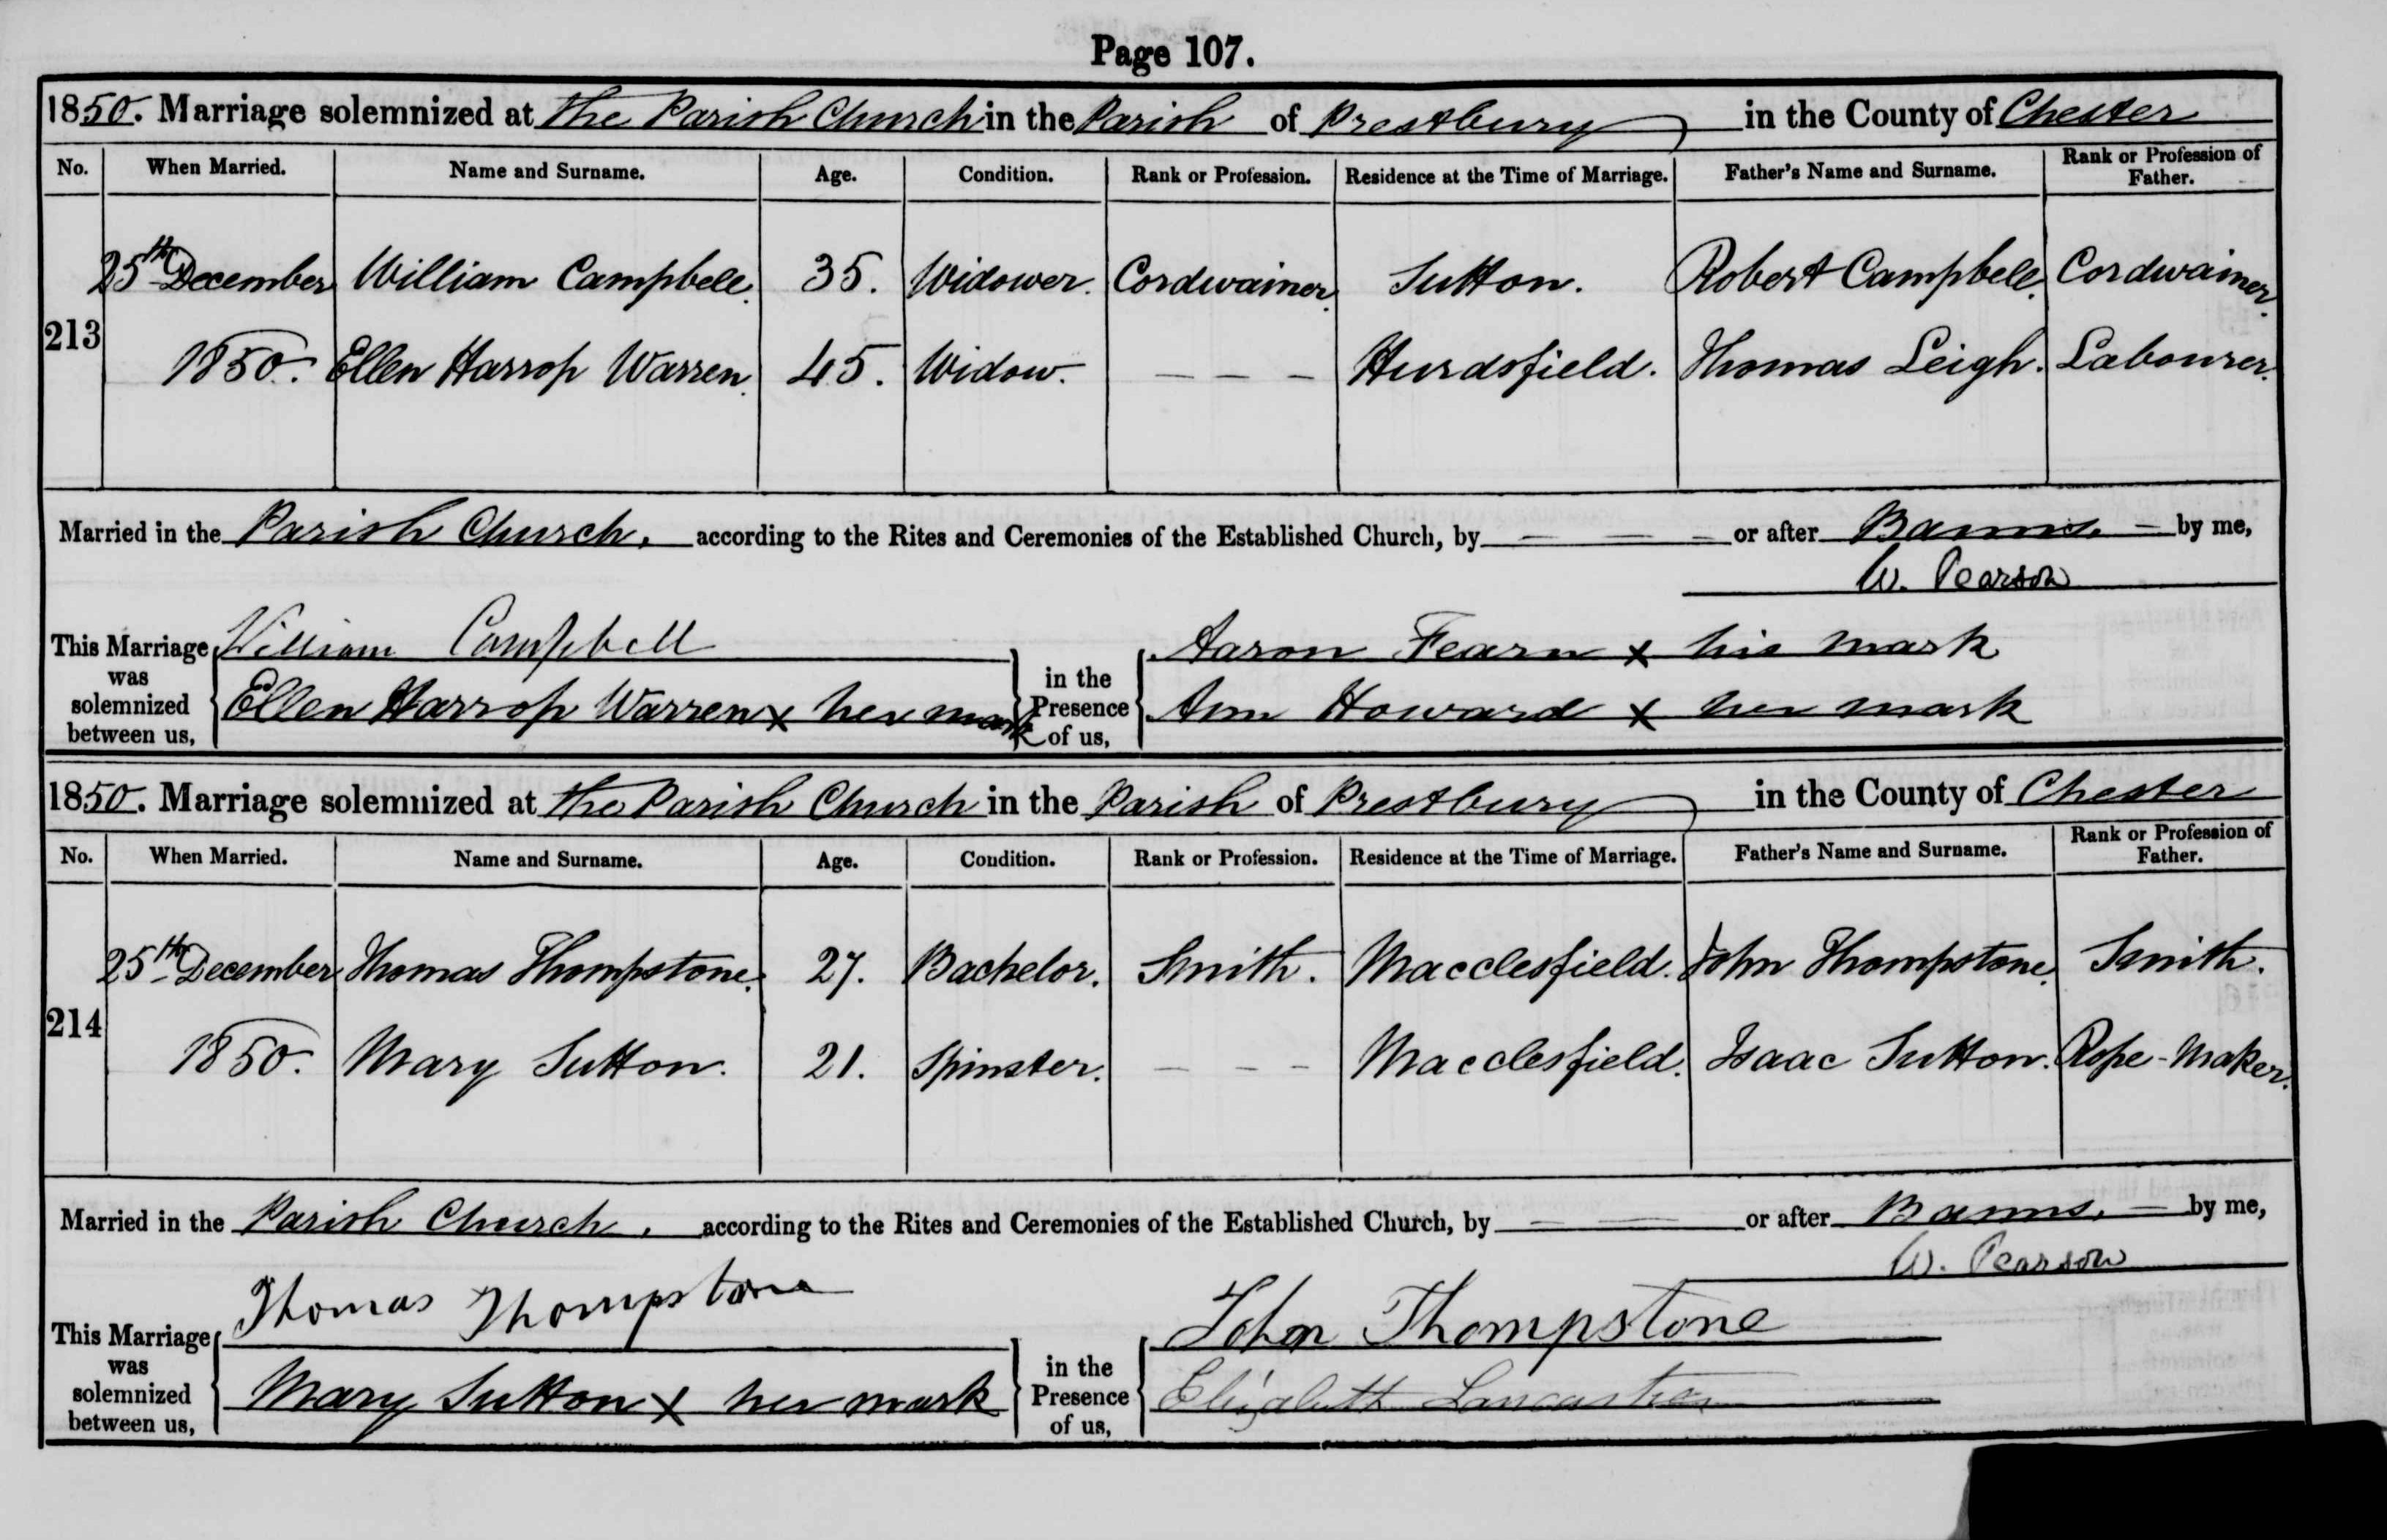 Page 107.
1850. Marriage solemnized at the Parish Church in the Parish of Prestbury in the County of Chester
No. When Married. Name and Surname. Age. Condition. Rank or Profession. Residence at the Time of Marriage. Father's Name and Surname. Rank or Profession of Father.
25th December William Campbell. 35. Widower. Cordwainer. Sutton. Robert Campbell. Cordwainer.
213
1850. Ellen Harrop Warren. 45. Widow. – – – Hurdsfield. Thomas Leigh. Labourer.
Married in the Parish Church, according to the Rites and Ceremonies of the Established Church, by — — – or after Banns. – by me,
W. Pearson
This Marriage was solemnized between us, William Campbell in the Presence of us, Aaron Fearn x his mark
Ellen Harrop Warren x her mark Ann Howard x her mark
1850. Marriage solemnized at the Parish Church in the Parish of Prestbury in the County of Chester
No. When Married. Name and Surname. Age. Condition. Rank or Profession. Residence at the Time of Marriage. Father's Name and Surname. Rank or Profession of Father.
25th December Thomas Thompstone. 27. Bachelor. Smith. Macclesfield. John Thompstone. Smith.
214
1850. Mary Sutton. 21. Spinster. – – – Macclesfield. Isaac Sutton. Rope-Maker.
Married in the Parish Church, according to the Rites and Ceremonies of the Established Church, by — — or after Banns. – by me,
W. Pearson
This Marriage was solemnized between us, Thomas Thompstone in the Presence of us, John Thompstone
Mary Sutton x her mark Elizabeth Lancaster